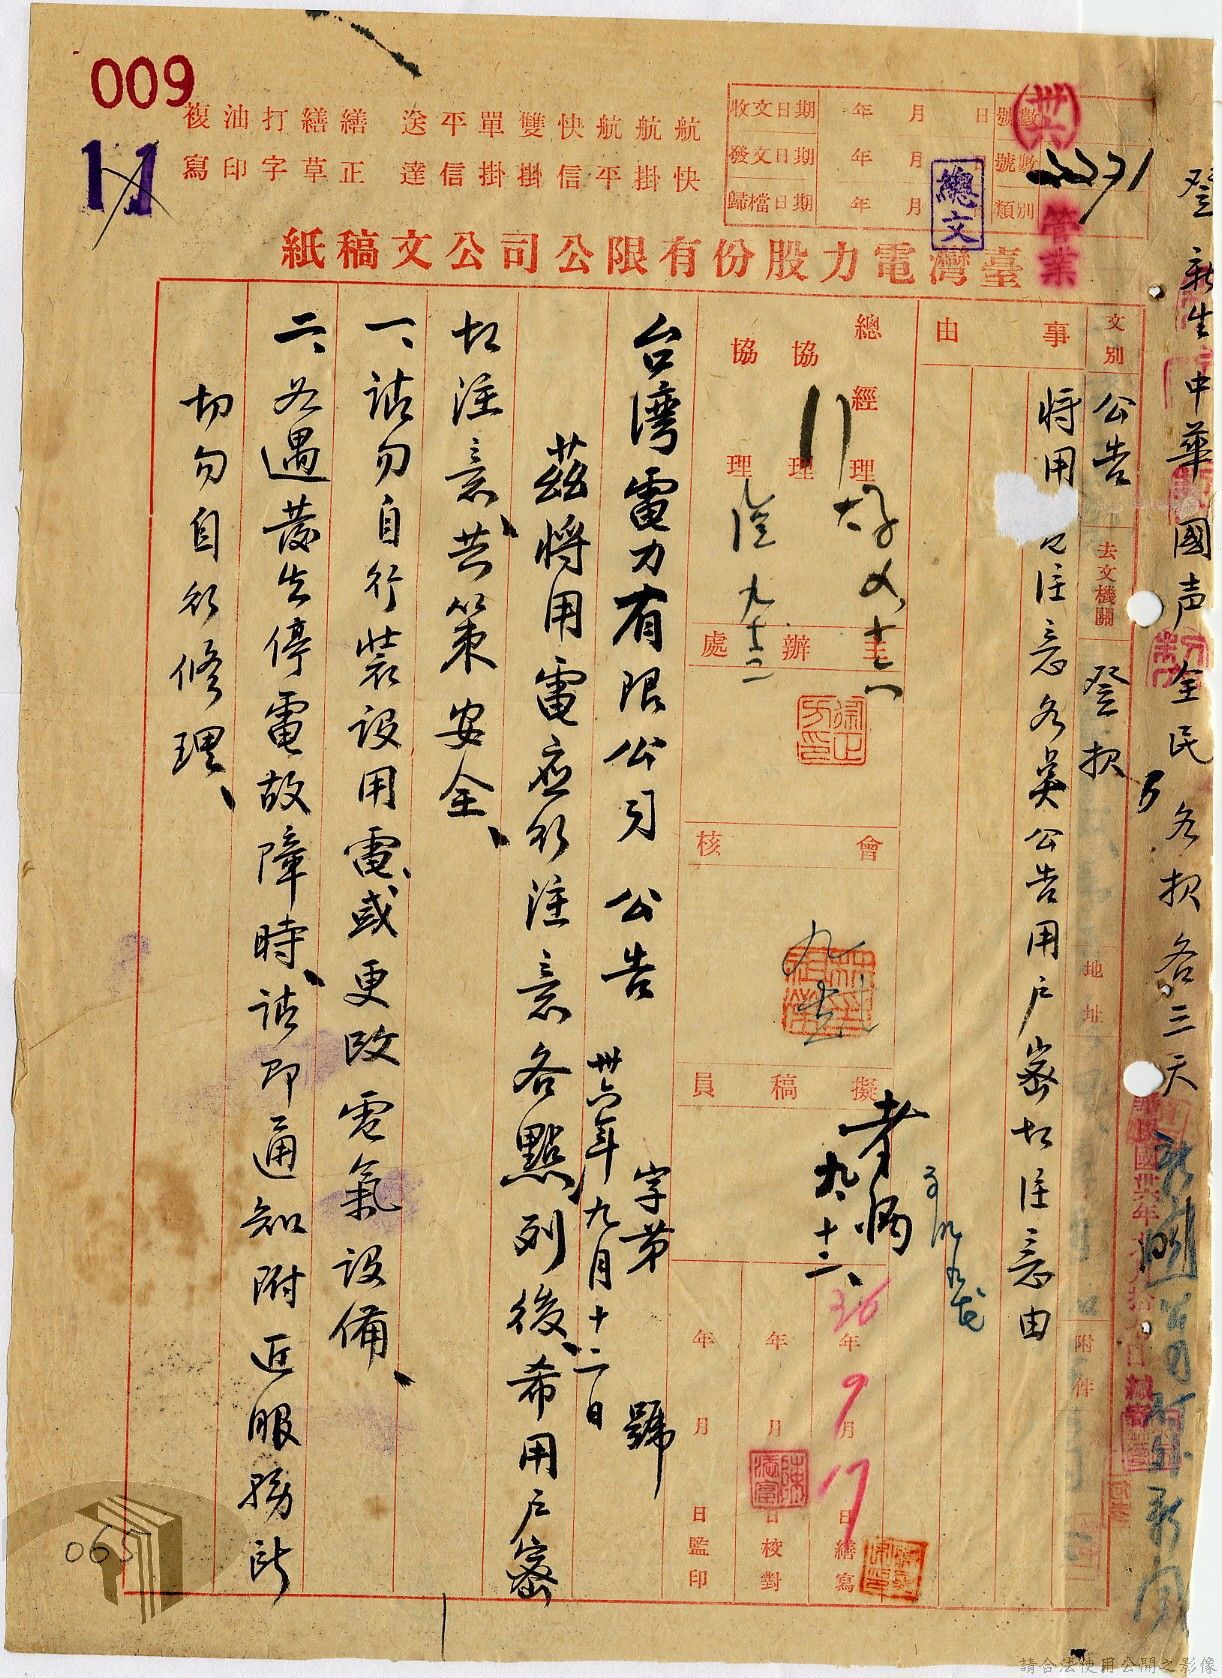 009
11
複寫 油印 打字 繕草 繕正 送達 平信 單掛 雙掛 快信 航平 航掛 航快
收文日期 年 月 日 號數
發文日期 年 月 號數
歸檔日期 年 月 類別
(卅六)
2271
總文
管業
臺灣電力股份有限公司公文稿紙
登新生中華國声全民各报各三天
文別 公告 去文機關 登报 地址 附件
事由
將用 注意各點公告用户密切注意由
總經理
協理
協理
主辦處
會核
擬稿員
九、十二、
36年9月17日繕寫
年 月 日校對
年 月 日監印
台湾電力有限公司 公告 字第 號
卅六年九月十二日
茲將用電应行注意各點列後、希用户密
切注意、共策安全、
一、請勿自行裝設用電、或更改電氣設備、
二、如遇發生停電故障時、請即通知附近服務所
切勿自行修理、
065
請合法使用公開之影像